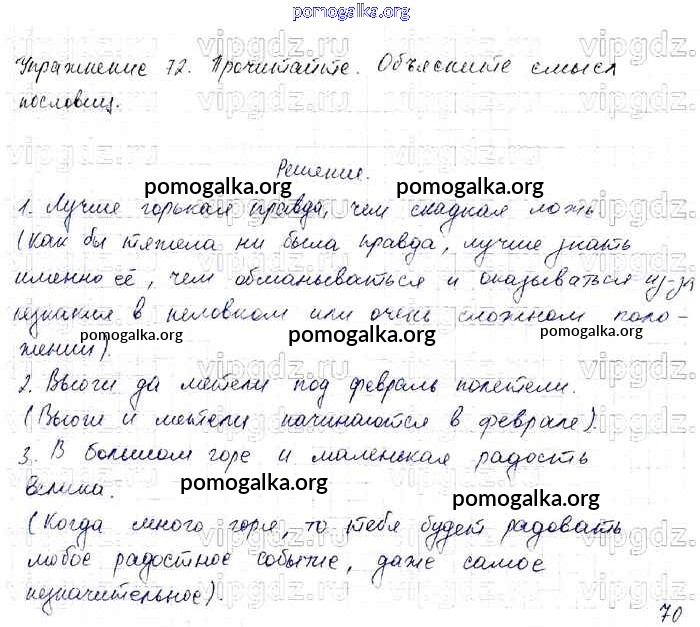 pomogalka.org
Упражнение 72. Прочитайте. Объясните смысл
пословиц.
Решение.
1. Лучше горькая правда, чем сладкая ложь
(Как бы тяжела ни была правда, лучше знать
именно её, чем обманываться и оказываться из-за
незнания в неловком или очень сложном поло-
жении).
2. Вьюги да метели под февраль полетели.
(Вьюги и метели начинаются в феврале).
3. В большом горе и маленькая радость
велика.
(Когда много горя, то тебя будет радовать
любое радостное событие, даже самое
незначительное).
70